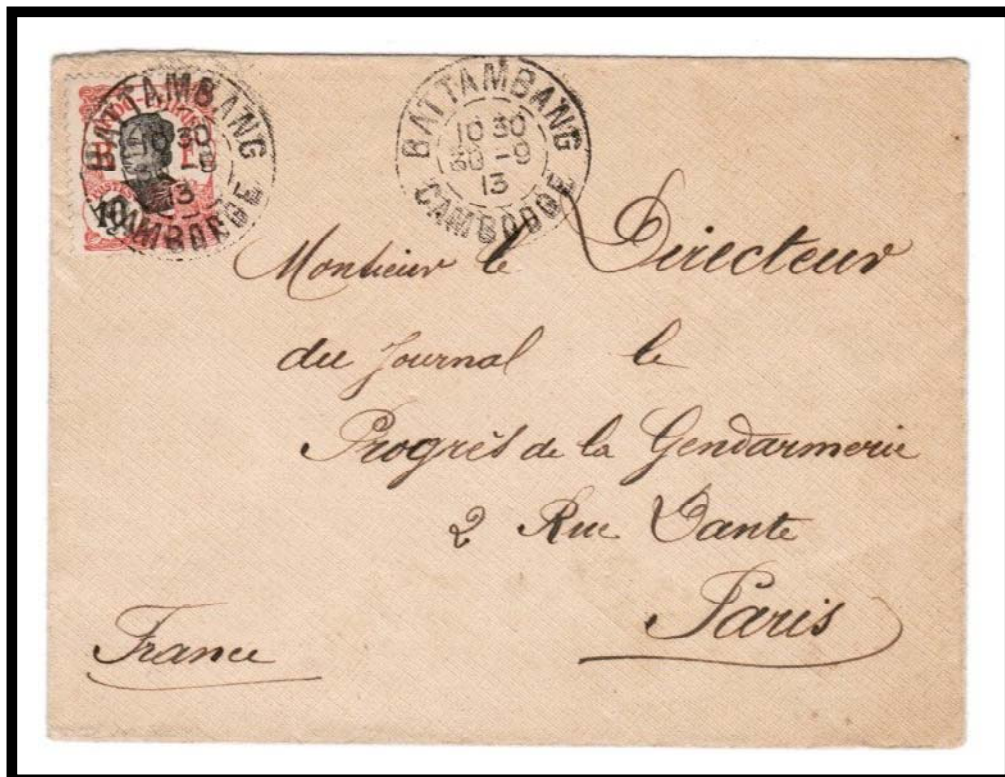 BATTAMBANG
10 30
30 -9
13
CAMBODGE
10
BATTAMBANG
10 30
30 -9
13
CAMBODGE
Monsieur le Directeur
du Journal le
Progrès de la Gendarmerie
2 Rue Dante
Paris
France